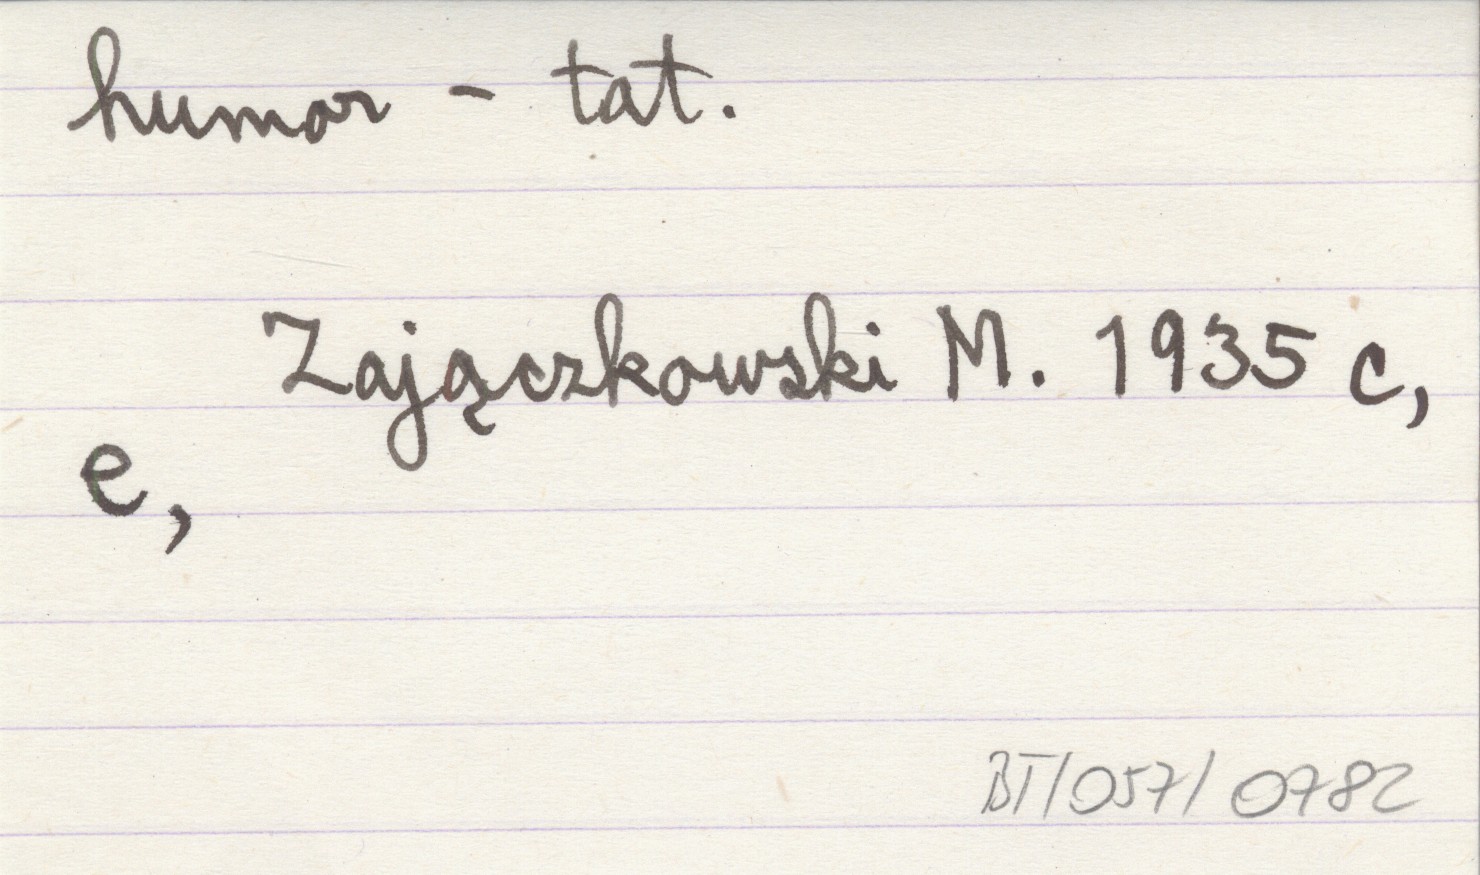 humor - tat.
Zajączkowski M. 1935 c,
e,
BT/057/0782